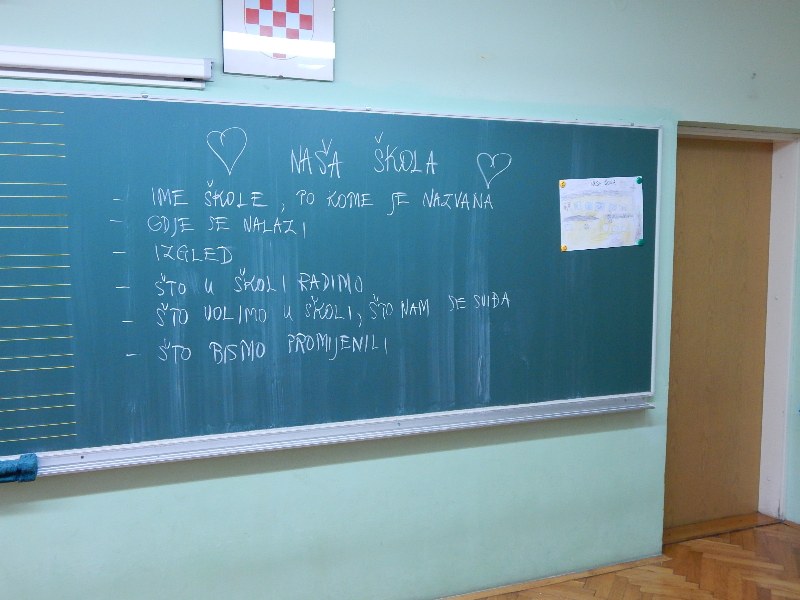 NAŠA ŠKOLA
- IME ŠKOLE, PO KOME JE NAZVANA
- GDJE SE NALAZI
- IZGLED
- ŠTO U ŠKOLI RADIMO
- ŠTO VOLIMO U ŠKOLI, ŠTO NAM SE SVIĐA
- ŠTO BISMO PROMIJENILI